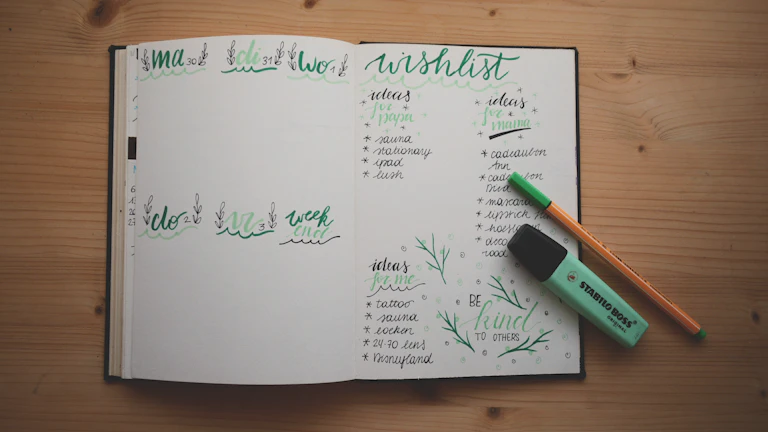 ma 30
di 31
wo 1
do 2
vr 3
week
end
wishlist
ideas
for
papa
* sauna
* stationary
* ipad
* lush
ideas
for
mama
* cadeaubon
* mascara
* lipstick
ideas
for me
* tattoo
* sauna
* boeken
* 24-70 lens
* Disneyland
BE
kind
TO OTHERS
STABILO BOSS
ORIGINAL